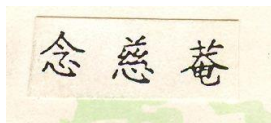 念慈菴